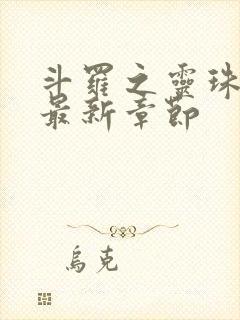 斗羅之靈珠
最新章節
烏克